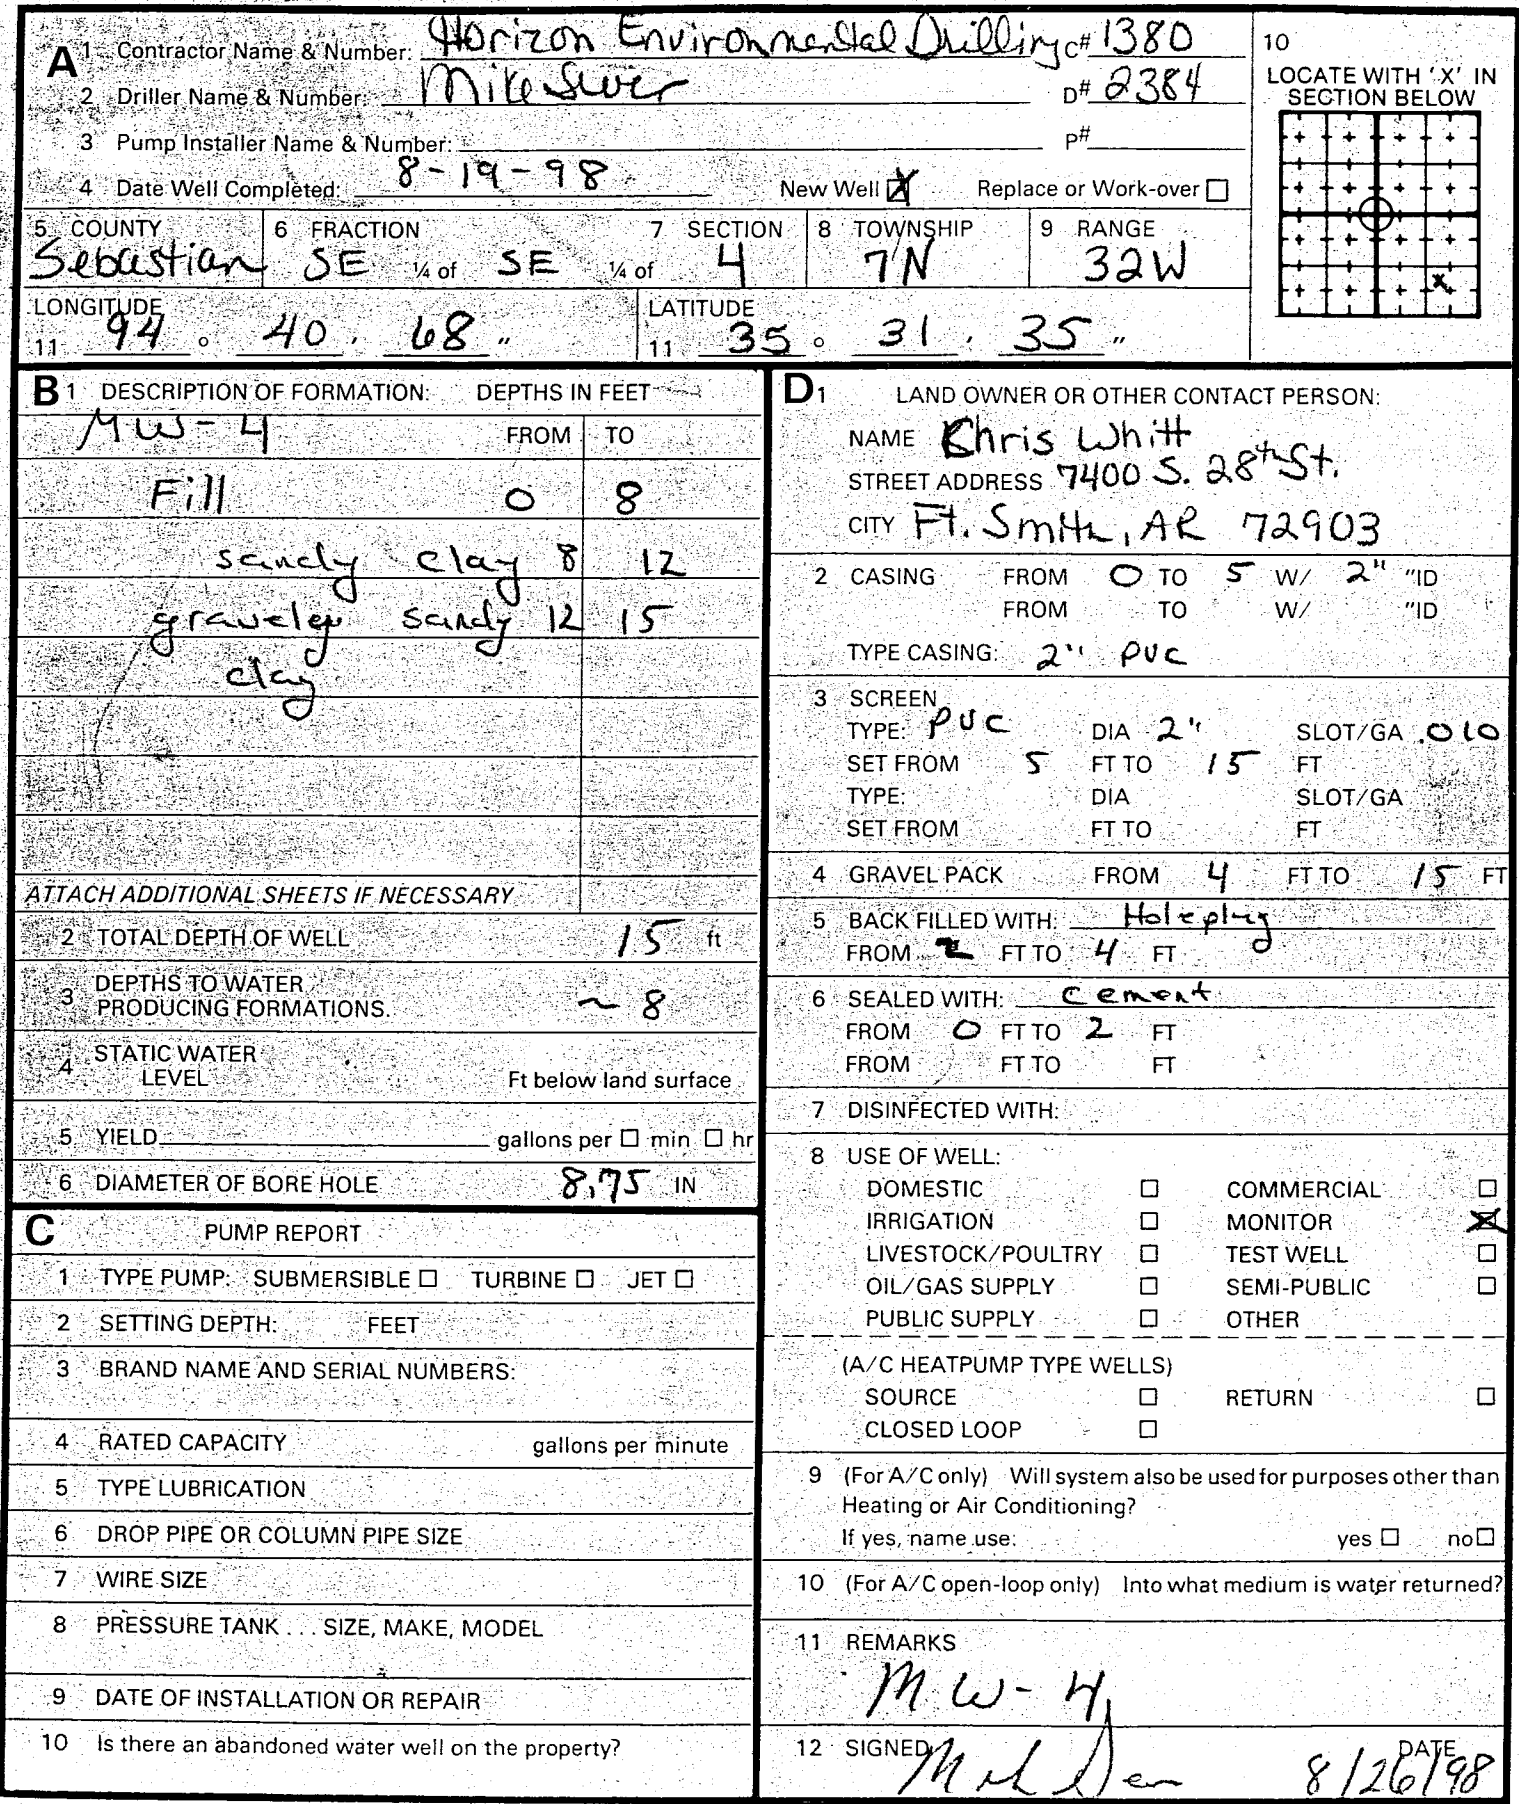 A 1 Contractor Name & Number: Horizon Environmental Drilling C# 1380
2 Driller Name & Number: Mike D# 2384
3 Pump Installer Name & Number: P#
4 Date Well Completed: 8-19-98 New Well ☒ Replace or Work-over ☐
10
LOCATE WITH 'X' IN
SECTION BELOW
5 COUNTY 6 FRACTION 7 SECTION 8 TOWNSHIP 9 RANGE
Sebastian SE ¼ of SE ¼ of 4 7N 32W
LONGITUDE LATITUDE
11 94 ° 40 ' 68 " 11 35 ° 31 ' 35 "
B 1 DESCRIPTION OF FORMATION: DEPTHS IN FEET
MW-4 FROM TO
Fill 0 8
sandy clay 8 12
graveley sandy 12 15
clay
ATTACH ADDITIONAL SHEETS IF NECESSARY
2 TOTAL DEPTH OF WELL 15 ft
3 DEPTHS TO WATER
PRODUCING FORMATIONS. ~ 8
4 STATIC WATER
LEVEL Ft below land surface
5 YIELD gallons per ☐ min ☐ hr
6 DIAMETER OF BORE HOLE 8.75 IN
C PUMP REPORT
1 TYPE PUMP: SUBMERSIBLE ☐ TURBINE ☐ JET ☐
2 SETTING DEPTH: FEET
3 BRAND NAME AND SERIAL NUMBERS:
4 RATED CAPACITY gallons per minute
5 TYPE LUBRICATION
6 DROP PIPE OR COLUMN PIPE SIZE
7 WIRE SIZE
8 PRESSURE TANK . . . SIZE, MAKE, MODEL
9 DATE OF INSTALLATION OR REPAIR
10 Is there an abandoned water well on the property?
D 1 LAND OWNER OR OTHER CONTACT PERSON:
NAME Chris Whitt
STREET ADDRESS 7400 S. 28th St.
CITY Ft. Smith, AR 72903
2 CASING FROM 0 TO 5 W/ 2" "ID
FROM TO W/ "ID
TYPE CASING: 2" PVC
3 SCREEN
TYPE: PVC DIA 2" SLOT/GA .010
SET FROM 5 FT TO 15 FT
TYPE: DIA SLOT/GA
SET FROM FT TO FT
4 GRAVEL PACK FROM 4 FT TO 15 FT
5 BACK FILLED WITH: Holeplug
FROM 2 FT TO 4 FT
6 SEALED WITH: cement
FROM 0 FT TO 2 FT
FROM FT TO FT
7 DISINFECTED WITH:
8 USE OF WELL:
DOMESTIC ☐ COMMERCIAL ☐
IRRIGATION ☐ MONITOR ☒
LIVESTOCK/POULTRY ☐ TEST WELL ☐
OIL/GAS SUPPLY ☐ SEMI-PUBLIC ☐
PUBLIC SUPPLY ☐ OTHER
(A/C HEATPUMP TYPE WELLS)
SOURCE ☐ RETURN ☐
CLOSED LOOP ☐
9 (For A/C only) Will system also be used for purposes other than
Heating or Air Conditioning?
If yes, name use: yes ☐ no ☐
10 (For A/C open-loop only) Into what medium is water returned?
11 REMARKS
MW-4
12 SIGNED DATE
8/26/98